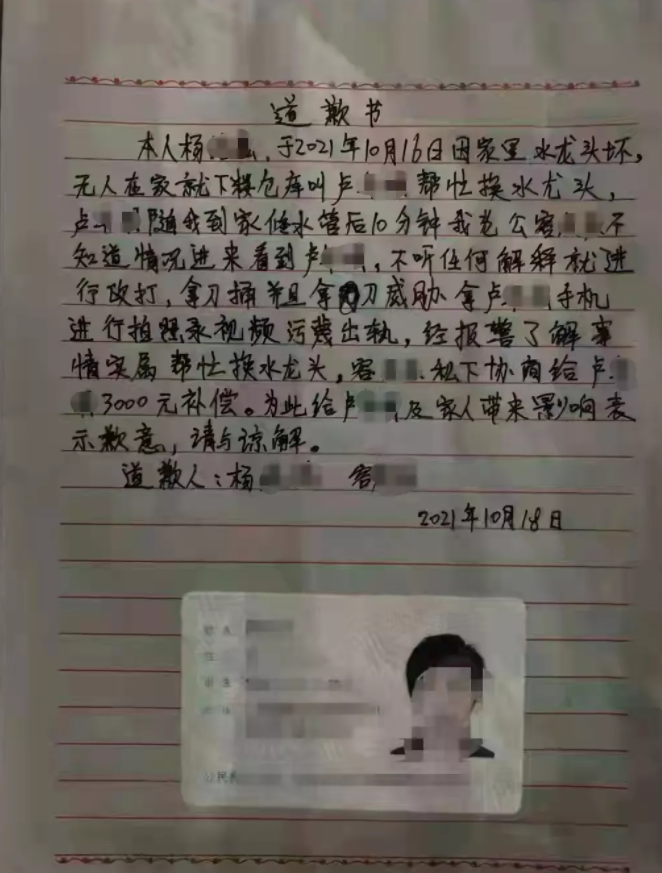 道歉书
本人杨 ,于2021年10月16日因家里水龙头坏,
无人在家就下粮仓库叫卢 帮忙换水龙头,
卢 随我到家修水管后10分钟我老公容 不
知道情况进来看到卢 ,不听任何解释就进
行攻打,拿刀捅并且拿 刀威胁拿卢 手机
进行拍照录视频污蔑出轨,经报警了解事
情实属帮忙换水龙头,容 私下协商给卢
,3000元补偿。为此给卢 及家人带来影响表
示歉意,请与谅解。
道歉人:杨 容
2021年10月18日
公民